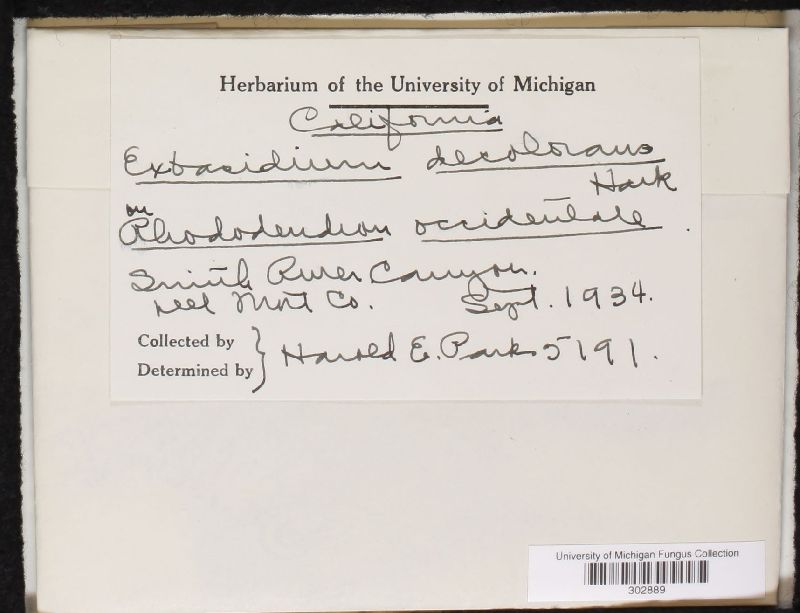 Herbarium of the University of Michigan
California
Exbasidium decolorans
Hark
on
Rhododendron occidentale.
Smith River Canyon.
Del Nort Co. Sept. 1934.
Collected by
Determined by } Harold E. Parks 5191.
University of Michigan Fungus Collection
302889